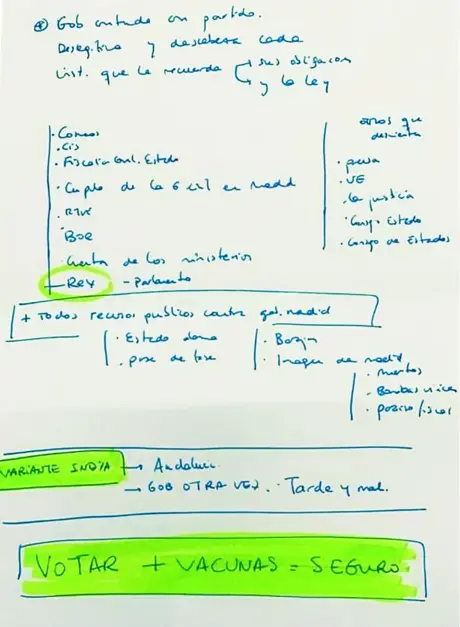 Gob contunde con partido.
Desegitima y descabeza cada
inst. que le recuerda sus obligacion
y la ley
· Correos
· CIS
· Fiscalia Gnl. Estado
· Cuples de la G civil en Madrid
· RTVE
· BOE
· Cuenta de los ministerios
— Rey - Parlamento
otros que
desmienten
· prensa
· UE
· la justicia
· Consejo Estado
· Consejo de Estados
+ Todos recursos publicos contra gob. madrid
· Estado alarma
· pase de fase
· Imagen de madrid
· muertos
· Bombas víricas
· paraiso fiscal
VARIANTE INDIA → Andaluc.
→ GOB OTRA VEZ. Tarde y mal.
VOTAR + VACUNAS = SEGURO